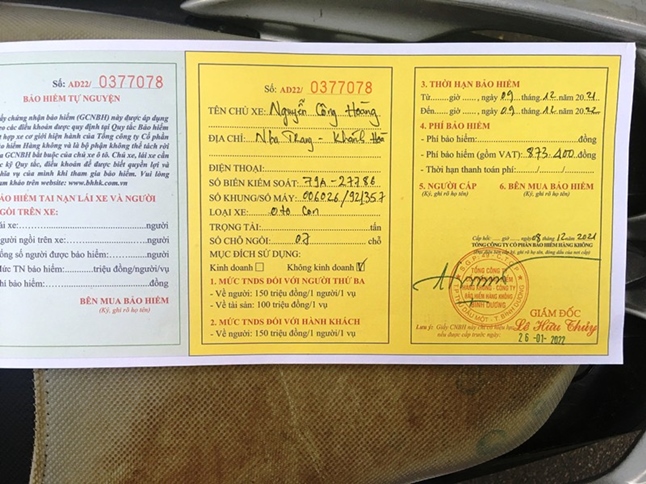 Số: AD22/ 0377078
BẢO HIỂM TỰ NGUYỆN
ấy chứng nhận bảo hiểm (GCNBH) này được áp dụng
eo các điều khoản được quy định tại Quy tắc Bảo hiểm
t hợp xe cơ giới hiện hành của Tổng công ty Cổ phần
ảo hiểm Hàng không và là bộ phận không thể tách rời
a GCNBH bắt buộc của chủ xe ô tô. Chủ xe, lái xe cần
c kỹ Quy tắc, điều khoản để được biết quyền lợi và
hĩa vụ của mình khi tham gia bảo hiểm. Vui lòng
am khảo trên website: www.bhhk.com.vn
ẢO HIỂM TAI NẠN LÁI XE VÀ NGƯỜI
GỒI TRÊN XE:
ái xe:...người/vụ
gười ngồi trên xe:...người/vụ
ổng số người được bảo hiểm:...người
ức TN bảo hiểm:...triệu đồng/người/vụ
hí bảo hiểm:...đồng
BÊN MUA BẢO HIỂM
(Ký, ghi rõ họ tên)
Số: AD22/ 0377078
TÊN CHỦ XE: Nguyễn Công Hoàng
ĐỊA CHỈ: Nha Trang - Khánh Hòa
ĐIỆN THOẠI:
SỐ BIỂN KIỂM SOÁT: 79A-27786
SỐ KHUNG/SỐ MÁY: 006026/921357
LOẠI XE: Oto con
TRỌNG TẢI: tấn
SỐ CHỖ NGỒI: 07 chỗ
MỤC ĐÍCH SỬ DỤNG:
Kinh doanh Không kinh doanh
1. MỨC TNDS ĐỐI VỚI NGƯỜI THỨ BA
- Về người: 150 triệu đồng/1 người/1 vụ
- Về tài sản: 100 triệu đồng/1 vụ
2. MỨC TNDS ĐỐI VỚI HÀNH KHÁCH
- Về người: 150 triệu đồng/1 người/1 vụ
3. THỜI HẠN BẢO HIỂM
Từ......giờ ..., ngày 09 tháng 12 năm 2021
Đến.....giờ ..., ngày 09 tháng 12 năm 2022
4. PHÍ BẢO HIỂM
- Phí bảo hiểm:...đồng
- Phí bảo hiểm (gồm VAT): 873.400 đồng
- Thời hạn thanh toán phí:
5. NGƯỜI CẤP 6. BÊN MUA BẢO HIỂM
(Ký, ghi rõ họ tên) (Ký, ghi rõ họ tên)
Cấp hồi: giờ ngày 08 tháng 12 năm 2021
TỔNG CÔNG TY CỔ PHẦN BẢO HIỂM HÀNG KHÔNG
TỔNG CÔNG TY
HÀNG KHÔNG - CÔNG TY
BẢO HIỂM HÀNG KHÔNG
BÌNH DƯƠNG
TP.THỦ DẦU MỘT - T. BÌNH DƯƠNG
GIÁM ĐỐC
Lê Hữu Thủy
Lưu ý: Giấy CNBH này chỉ có hiệu lực
nếu được cấp trước ngày:
26-01-2022